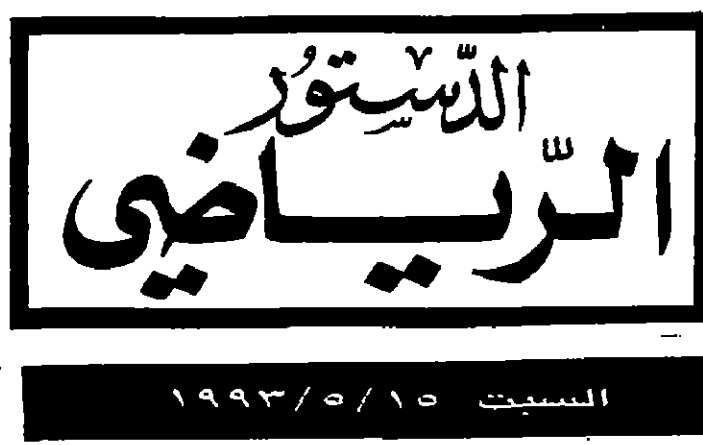 الدّستورُ
الرّياضي
السبت ١٩٩٣/٥/١٥